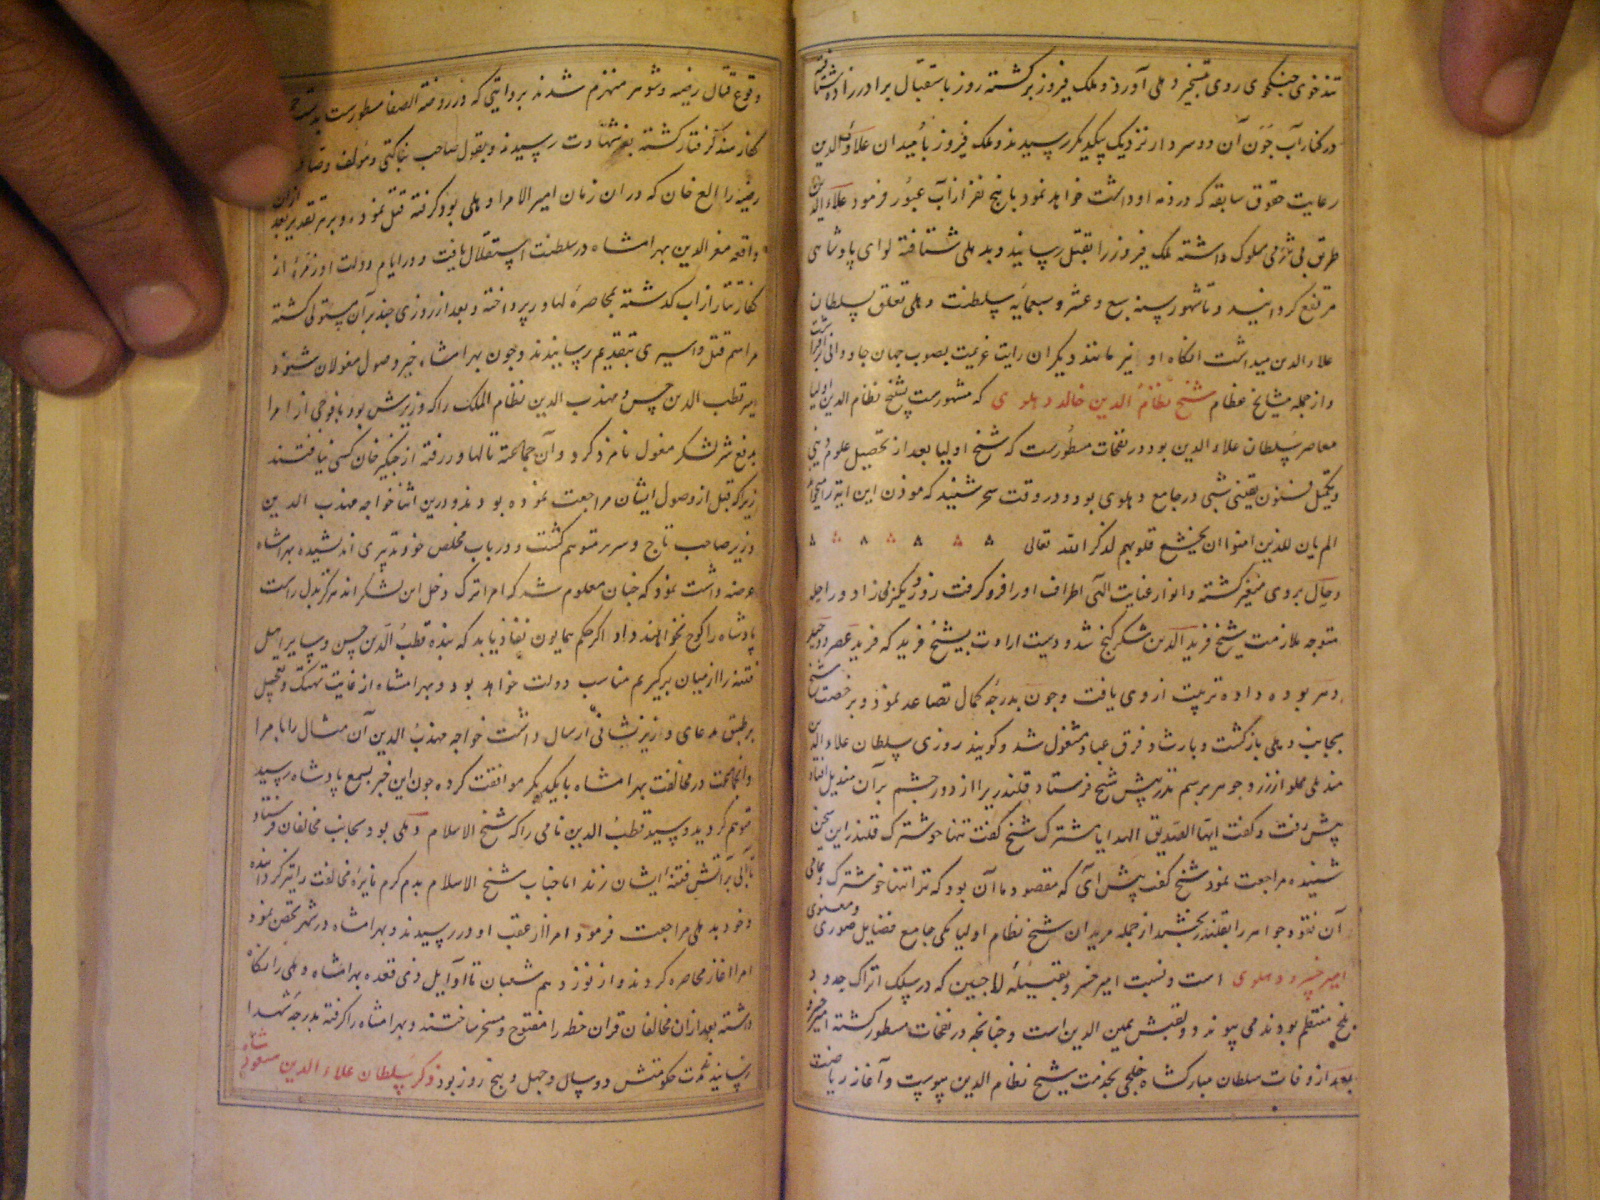 تندخوی جنکجوی روی بتسخیر دهلی آورد و ملک فیروز برکشته روز باستقبال برادرزاده شتافته
در کنار آب جون آن دو سردار نزدیک بیکدیکر رسیدند و ملک فیروز با میدان علاء الدین
رعایت حقوق سابقه که در ذمه او داشت خواهد نمود با پنج نفر از آب عبور فرمود علاء الدین
طریق بی شرمی سلوک داشته ملک فیروز را بقتل رسانید و بدهلی شتافته لوای پادشاهی
مرتفع کردانید و تا شهور سنه سبع و عشر و سبعمایه سلطنت دهلی تعلق بسلطان
علاء الدین میداشت انکاه او نیز مانند دیکران رایت عزیمت بصوب جهان جاودانی برافراشت
و از جمله مشایخ عظام شیخ نظام الدین خالد دهلوی که مشهورست بشیخ نظام الدین اولیا
معاصر سلطان علاء الدین بود در نفحات مسطورست که شیخ اولیا بعد از تحصیل علوم دینی
و تکمیل فنون یقینی شبی در جامع دهلوی بود و در وقت سحر شنید که موذن این ایة را میخواند
الم یان للذین امنوا ان تخشع قلوبهم لذکر الله تعالی
و حال بر وی متغیر کشته و انوار عنایت الهی اطراف او را فرو کرفت روز دیکر بی زاد و راحله
متوجه ملازمت شیخ فرید الدین شکر کنج شد و دست ارادت بشیخ فرید که فرید عصر و وحید
دهر بود داده تربیت از وی یافت و چون بدرجه کمال تصاعد نمود بر خصت شیخ
بجانب دهلی بازکشت و بارشاد فرق عباد مشغول شد و کویند روزی سلطان علاء الدین
مندیلی مملو از زر و جوهر برسم نذر پیش شیخ فرستاد قلندریرا از دور چشم بر آن مندیل افتاد
پیش رفت و کفت ایها الصدیق الهدایا مشترک شیخ کفت تنها خوشترک قلندر این سخن
شنیده مراجعت نمود شیخ کفت پیش آی که مقصود ما آن بود که ترا تنها خوشترک و تمامی
آن نقود و جواهر را بقلندر بخشید از جمله مریدان شیخ نظام اولیا یکی جامع فضایل صوری و معنوی
امیر خسرو دهلوی است و نسبت امیر خسرو بقبیله لاچین که در سلک اتراک حدود
بلخ منتظم بودند می پیوندد و لقبش یمین الدین است و چنانچه در نفحات مسطور کشته امیر خسرو
بعد از وفات سلطان مبارکشاه خلجی بخدمت شیخ نظام الدین پیوست و آغاز ریاضت
وقوع قتال رضیه و شوهر منهزم شدند بروایتی که در روضة الصفا مسطورست بدست
کفار هند کرفتار کشته بعز شهادت رسیدند و بقول صاحب بناکتی و مولف وصاف
رضیه را الغ خان که در ان زمان امیر الامرا دهلی بود کرفته قتل نمود و بر هر تقدیر بعد از این
واقعه معز الدین بهرامشاه در سلطنت استقلال یافت و در ایام دولت او زمره از
کفار تتار از اب کذشته بمحاصره لهاور پرداخته و بعد از روزی چند بر آن مستولی کشته
مراسم قتل و اسیری بتقدیم رسانیدند و چون بهرامشاه خبر وصول مغولان شنود
امیر قطب الدین حسن و مهذب الدین نظام الملک را که وزیرش بود با فوجی از امرا
بدفع شر لشکر مغول نامزد کرد و آن جماعة تا لهاور رفته از چنکیز خان کسی نیافتند
زیرا که قبل از وصول ایشان مراجعت نموده بودند و درین اثنا خواجه مهذب الدین
وزیر صاحب تاج و سریر متوهم کشت و در باب مخلص خود تدبیری اندیشیده بهرامشاه
عرضه داشت نمود که چنان معلوم شد که امرا ترک و خل این لشکر اند هرکز بدل راست
پادشاه را کوچ نخواهند داد اکر حکم همایون نفاذ یابد که بنده قطب الدین حسن و سایر اهل
فتنه را از میان برکیریم مناسب دولت خواهد بود و بهرامشاه از غایت تهتک و تعجیل
بر طبق مدعای وزیر نشانی ارسال داشت خواجه مهذب الدین آن مثال را بامرا
و انجماعت در مخالفت بهرامشاه با یکدیکر موافقت کرده چون این خبر بسمع پادشاه رسید
متوهم کردید و سید قطب الدین نامی را که شیخ الاسلام دهلی بود بجانب مخالفان فرستاد
تا آبی بر آتش فتنه ایشان زند اما جناب شیخ الاسلام بدم کرم نایره مخالفت را تیز کردانیده
و خود بدهلی مراجعت فرمود و امرا از عقب او در رسیدند و بهرامشاه در شهر تحصن نمود
امرا اغاز محاصره کردند و از نوزدهم شعبان تا اوایل ذی قعده بهرامشاه دهلی را نکاه
داشته بعد از ان مخالفان قران خطه را مفتوح و مسخر ساختند و بهرامشاه را کرفته بدرجه شهدا
رسانیدند مدت حکومتش دو سال و چهل و پنج روز بود ذکر سلطان علاء الدین مسعود شاه